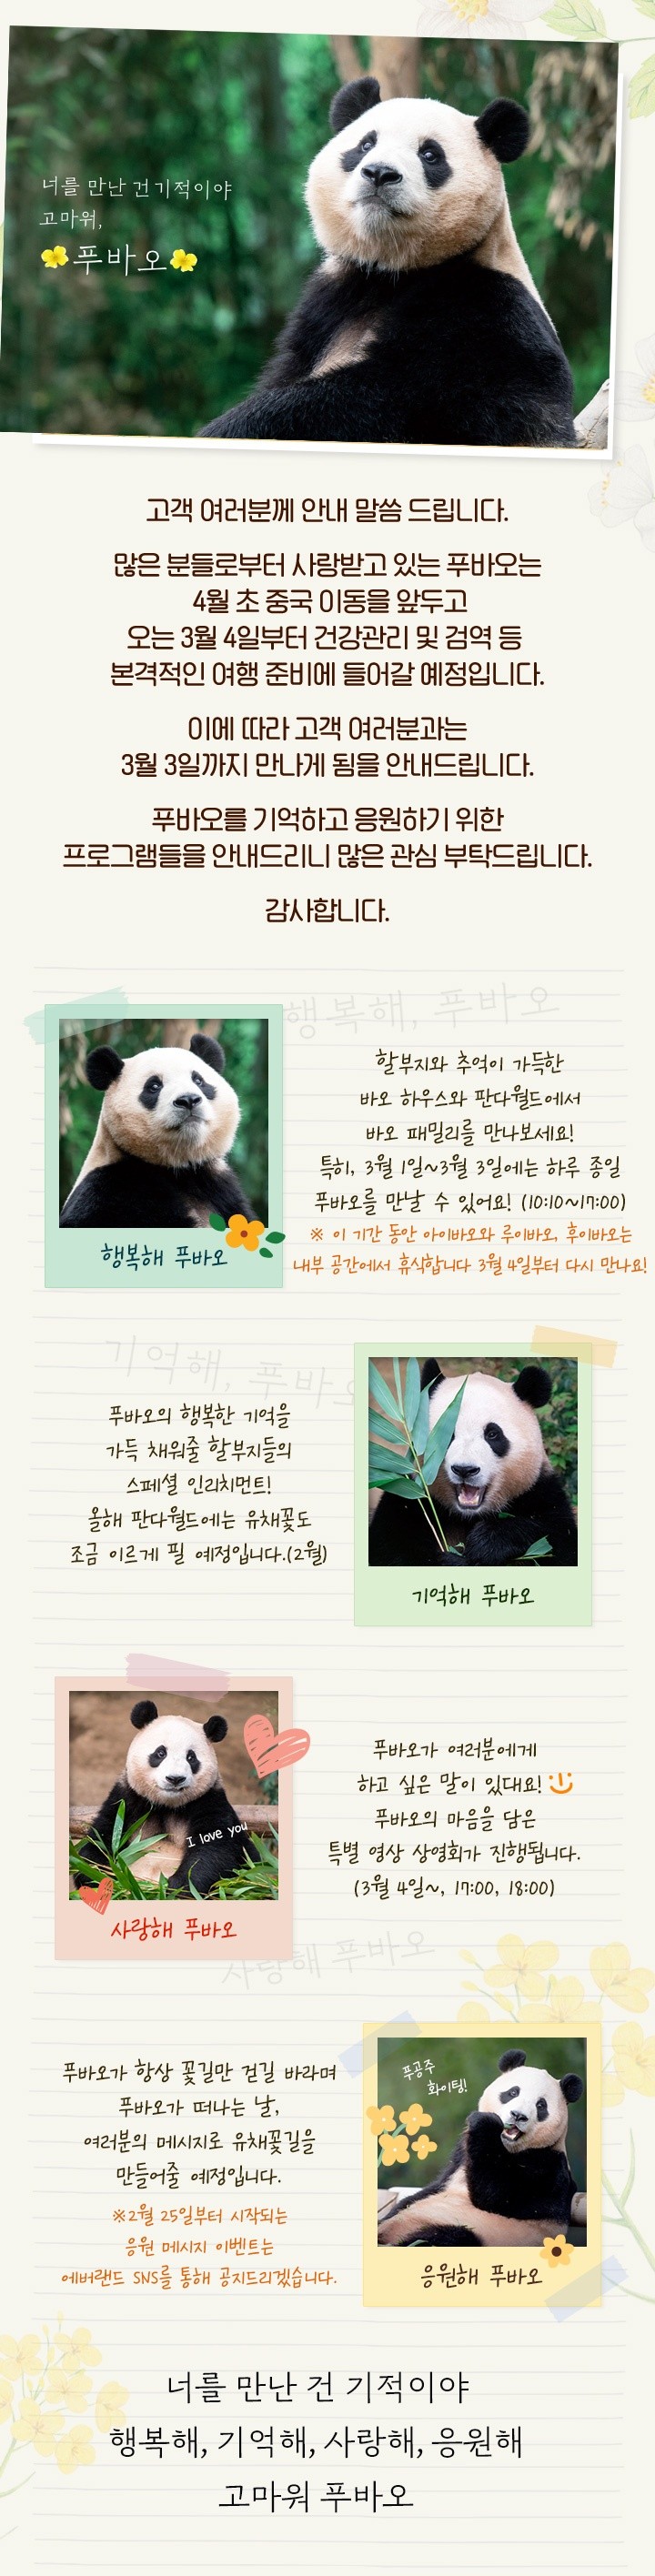 너를 만난 건 기적이야
고마워,
푸바오
고객 여러분께 안내 말씀 드립니다.
많은 분들로부터 사랑받고 있는 푸바오는
4월 초 중국 이동을 앞두고
오는 3월 4일부터 건강관리 및 검역 등
본격적인 여행 준비에 들어갈 예정입니다.
이에 따라 고객 여러분과는
3월 3일까지 만나게 됨을 안내드립니다.
푸바오를 기억하고 응원하기 위한
프로그램들을 안내드리니 많은 관심 부탁드립니다.
감사합니다.
행복해, 푸바오
할부지와 추억이 가득한
바오 하우스와 판다월드에서
바오 패밀리를 만나보세요!
특히, 3월 1일~3월 3일에는 하루 종일
푸바오를 만날 수 있어요! (10:10~17:00)
※ 이 기간 동안 아이바오와 루이바오, 후이바오는
내부 공간에서 휴식합니다 3월 4일부터 다시 만나요!
행복해 푸바오
기억해, 푸바오
푸바오의 행복한 기억을
가득 채워줄 할부지들의
스페셜 인리치먼트!
올해 판다월드에는 유채꽃도
조금 이르게 필 예정입니다.(2월)
기억해 푸바오
푸바오가 여러분에게
하고 싶은 말이 있대요!
푸바오의 마음을 담은
특별 영상 상영회가 진행됩니다.
(3월 4일~, 17:00, 18:00)
I love you
사랑해 푸바오
사랑해 푸바오
푸바오가 항상 꽃길만 걷길 바라며
푸바오가 떠나는 날,
여러분의 메시지로 유채꽃길을
만들어줄 예정입니다.
※2월 25일부터 시작되는
응원 메시지 이벤트는
에버랜드 SNS를 통해 공지드리겠습니다.
푸공주
화이팅!
응원해 푸바오
너를 만난 건 기적이야
행복해, 기억해, 사랑해, 응원해
고마워 푸바오